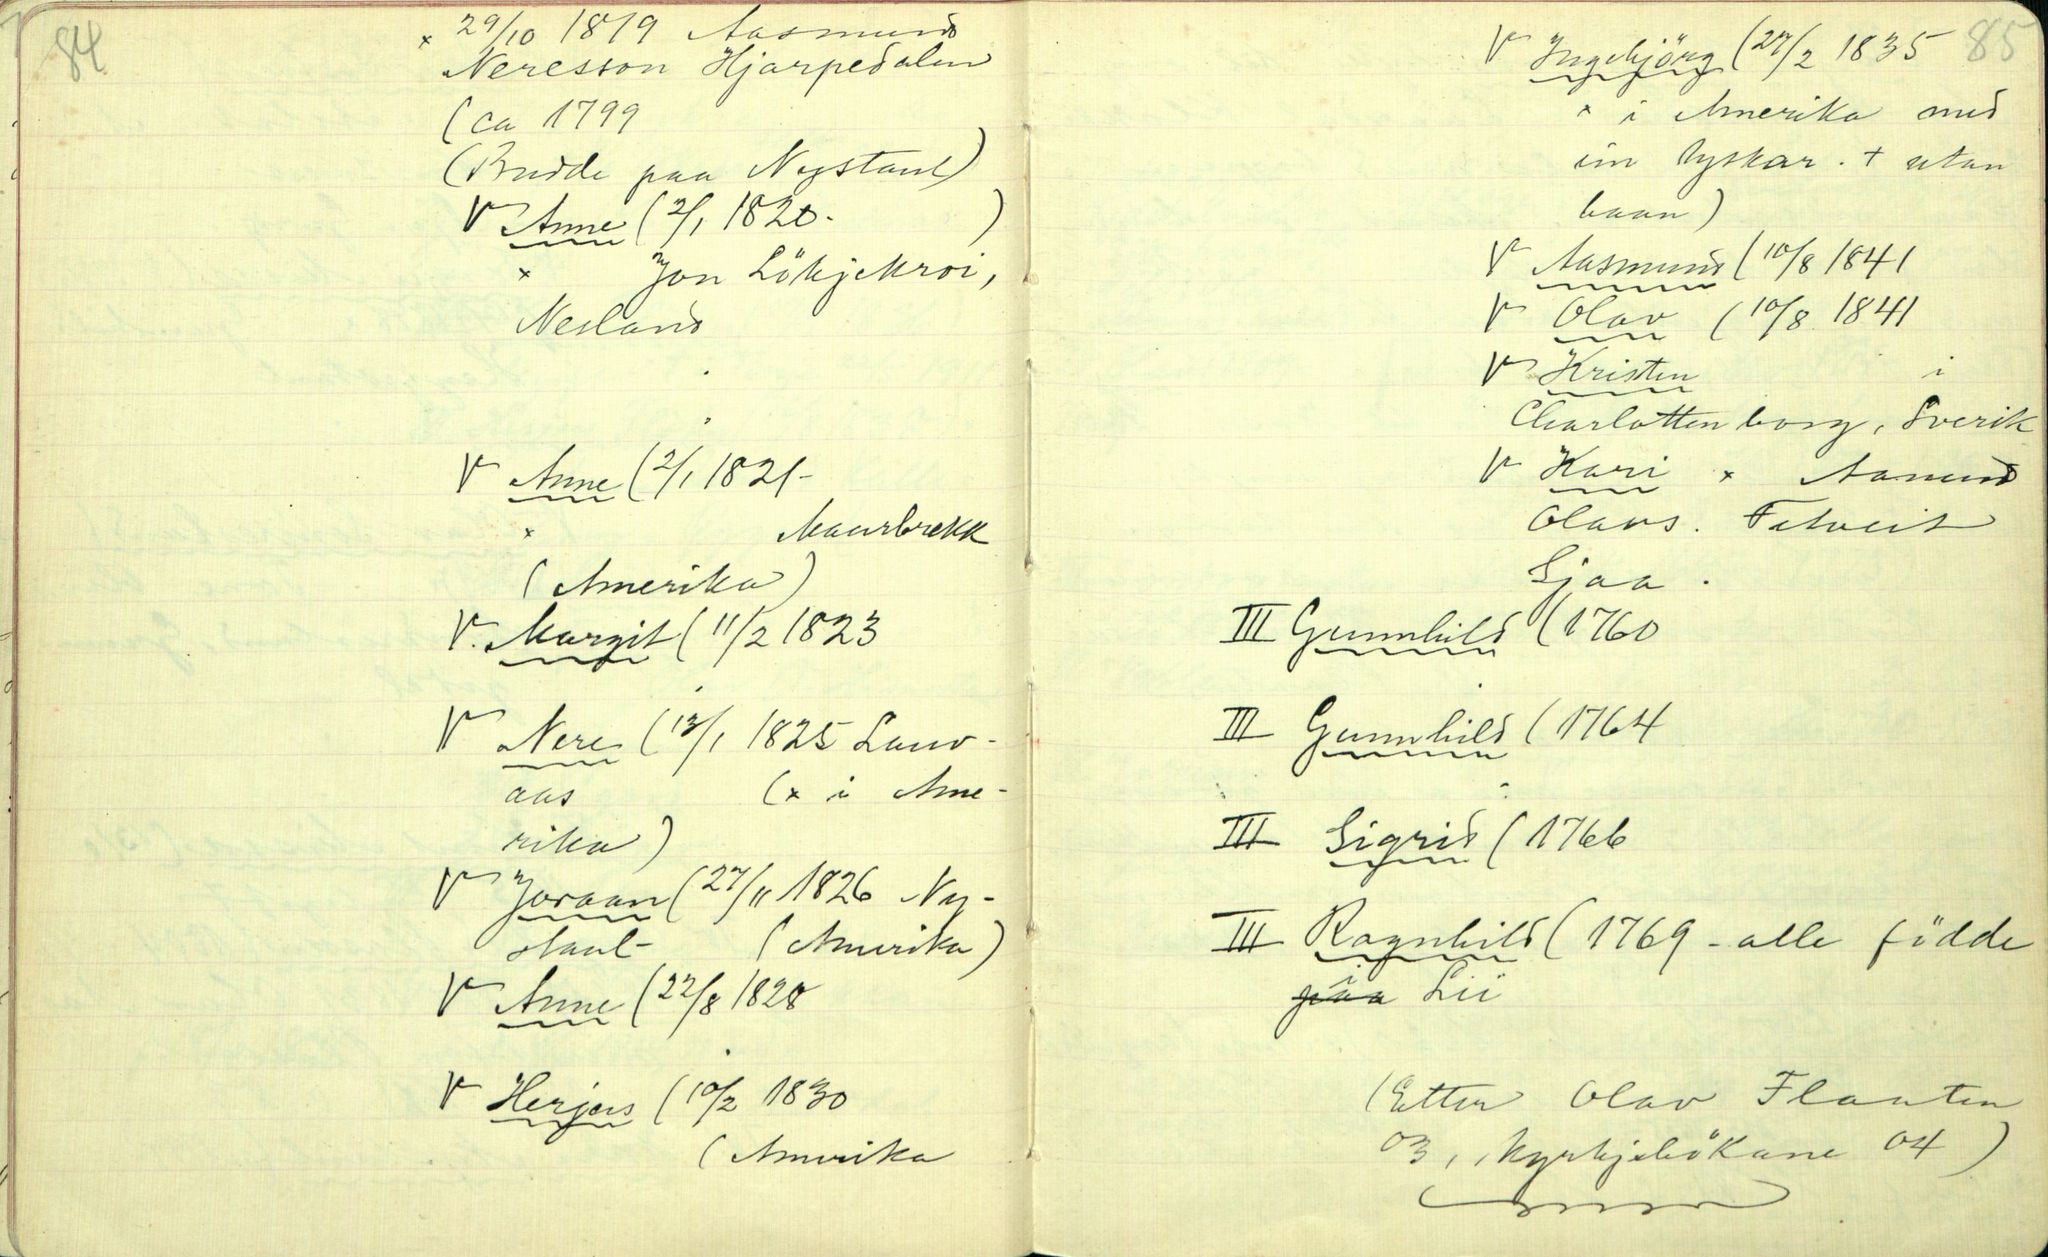 84
× 29/10 1819 Aasmund
Neresson Hjarpedalen
(ca 1799
(Budde paa Nystaul)
V Anne (2/1 1820- )
× Jon Lökjekroi,
Nesland
V Anne (2/1 1821-
× Maurbrekk
(Amerika)
V. Margit (11/2 1823
V Nere (13/1 1825 Lauv-
aas (× i Ame-
rika)
V Joraan (27/11 1826 Ny-
staul- (Amerika)
V Anne (22/8 1828
V Herjus (10/2 1830
(Amerika
85
V Ingebjörg (27/2 1835
× i Amerika med
ein tyskar. + utan
baan)
V Aasmund (10/8 1841
V Olav (10/8 1841
V Kristen i
Charlottenborg, Sverik
V Kari × Aamund
Olavs. Tetveit
Sjaa.
III Gunnhild (1760
III Gunnhild (1764
III Sigrid (1766
III Ragnhild (1769 - alle födde
i
paa Lii
(Etter Olav Flaaten
03, kyrkjebökane 04)